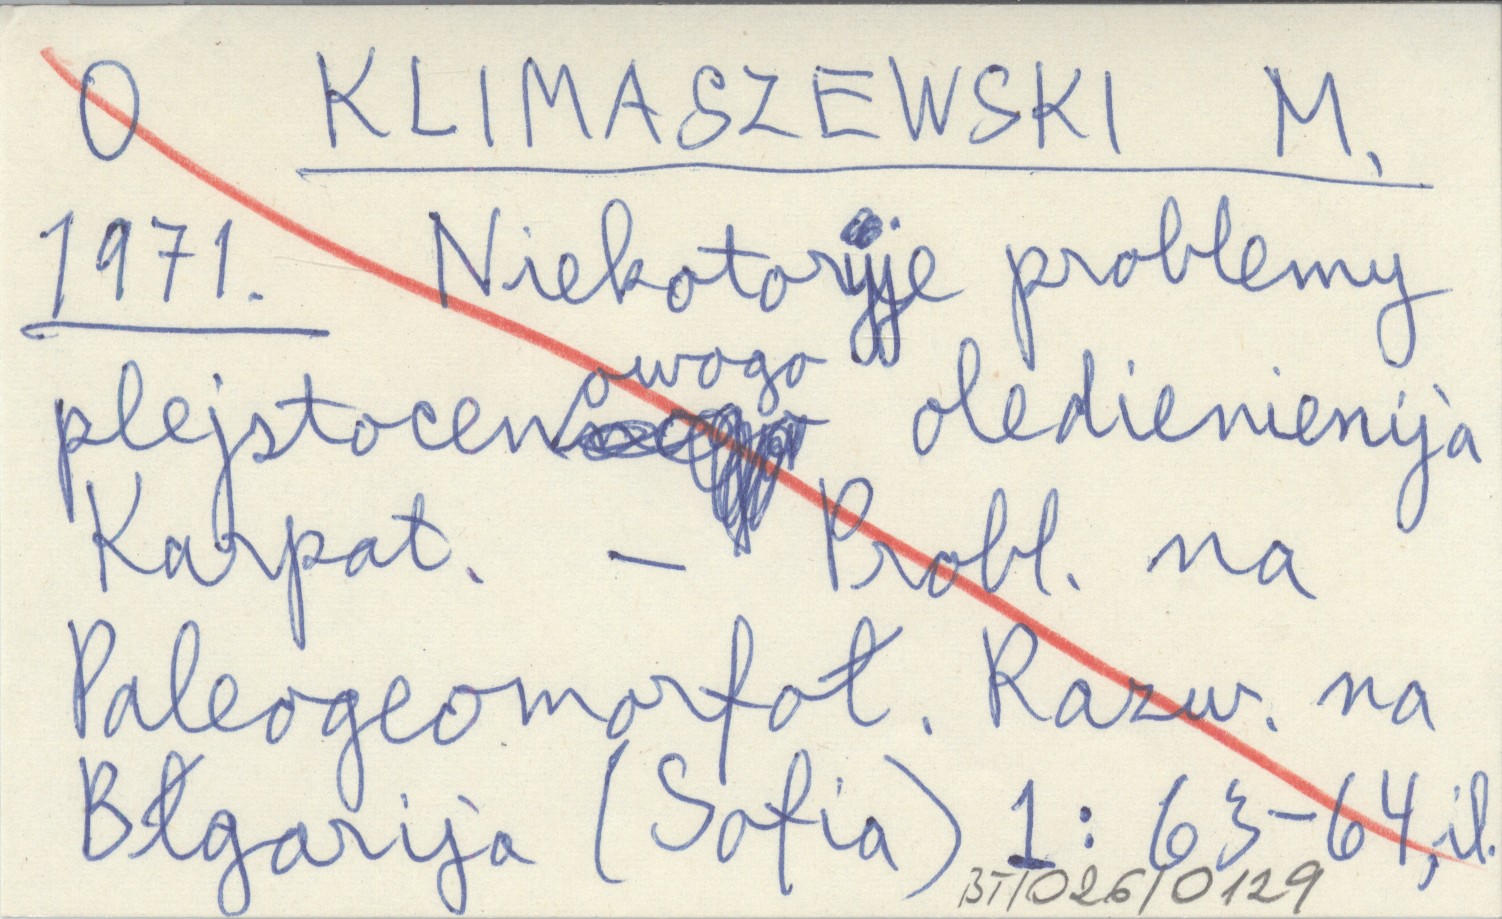 O KLIMASZEWSKI M.
1971. Niekotoryje problemy
plejstocenowogo oledienienija
Karpat. – Probl. na
Paleogeomorfoł. Razw. na
Błgarija (Sofia) 1: 63-64, il.
BT/026/0129